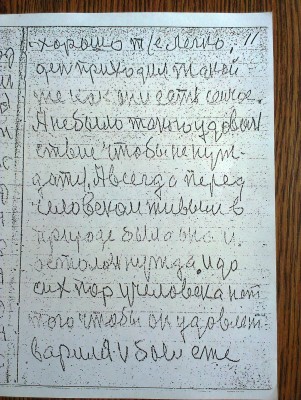 хорошо т/е легко, 11
ден приходил такой
же как он и есть сейчас.
А не было такого удовол
ствие чтобы не нуж-
дат/. А всегда перед
человеком живым в
природе была она и
осталас нужда. И до
сих пор у человека нет
того чтобы он удовлет
варился и был